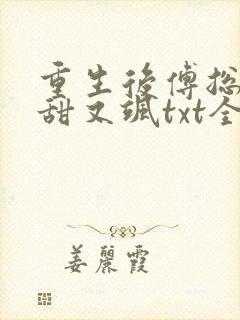 重生後傅总
甜又飒txt全
姜麗霞